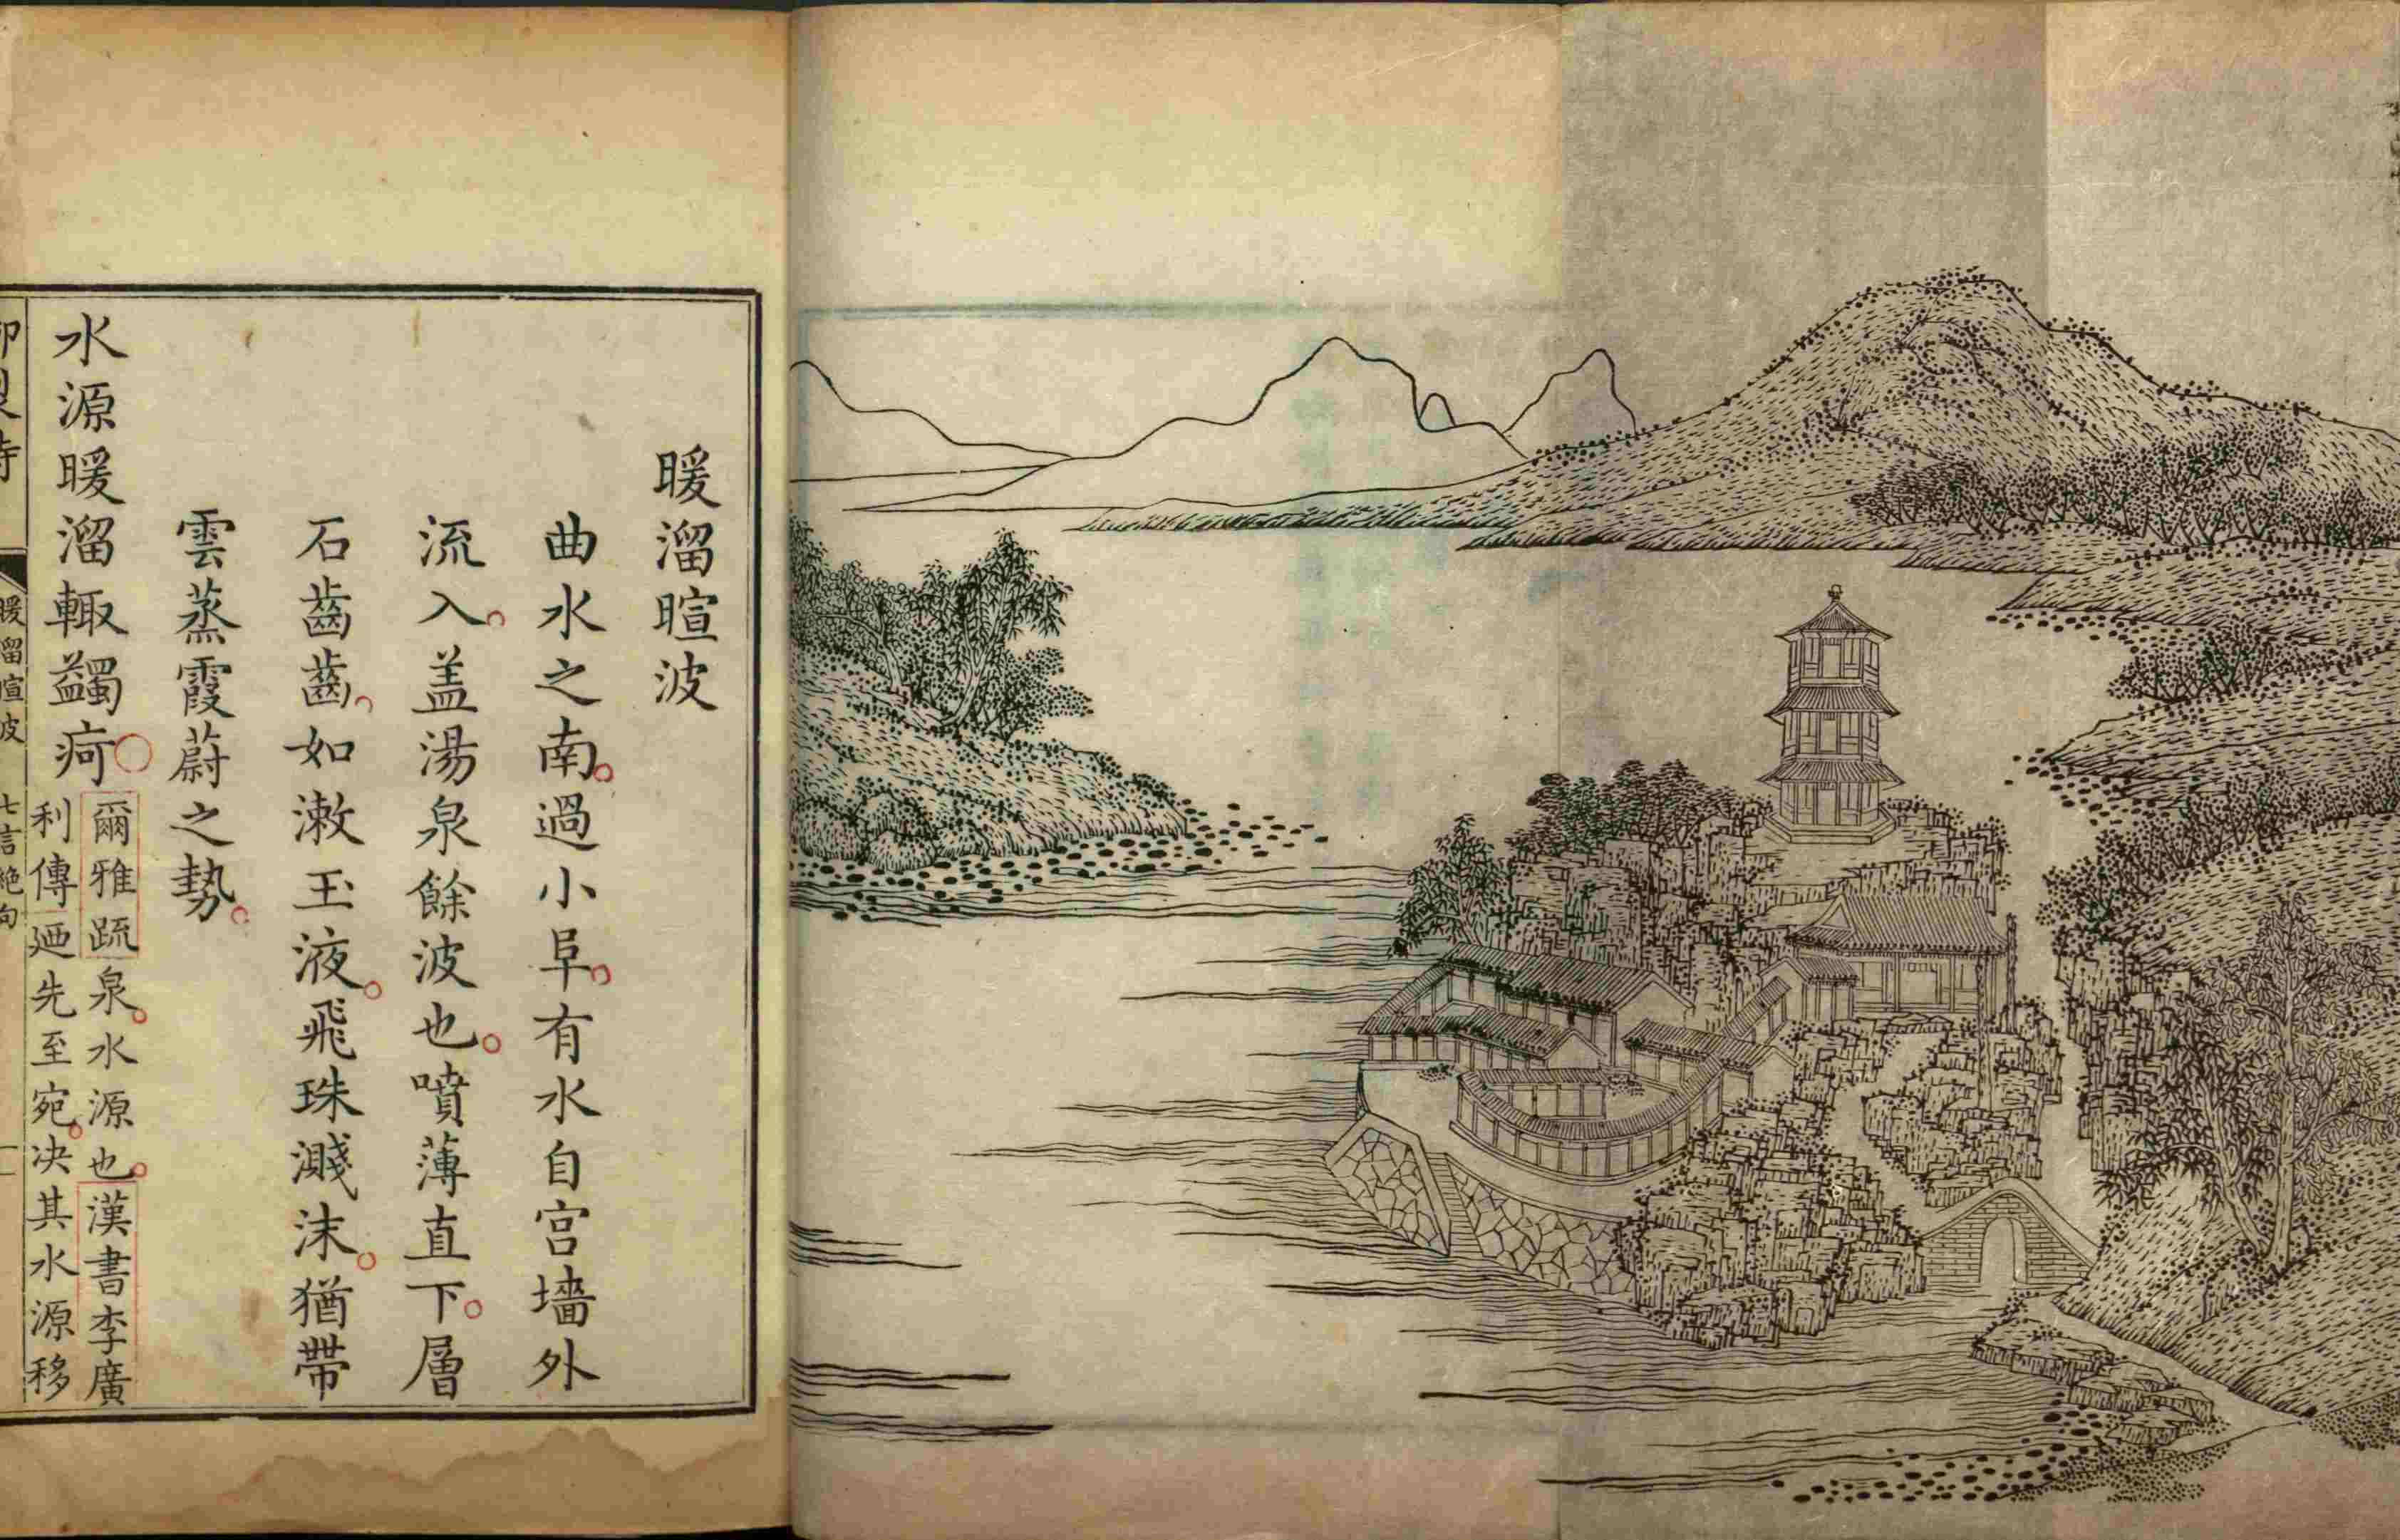 暖溜暄波
曲水之南過小阜有水自宮墻外
流入盖湯泉餘波也噴薄直下層
石齒齒如漱玉液飛珠濺沫猶帶
雲蒸霞蔚之勢
水源暖溜輙蠲疴
爾雅䟽泉水源也漢書李廣
利傳廼先至宛决其水源移
暖溜暄波 七言絶句